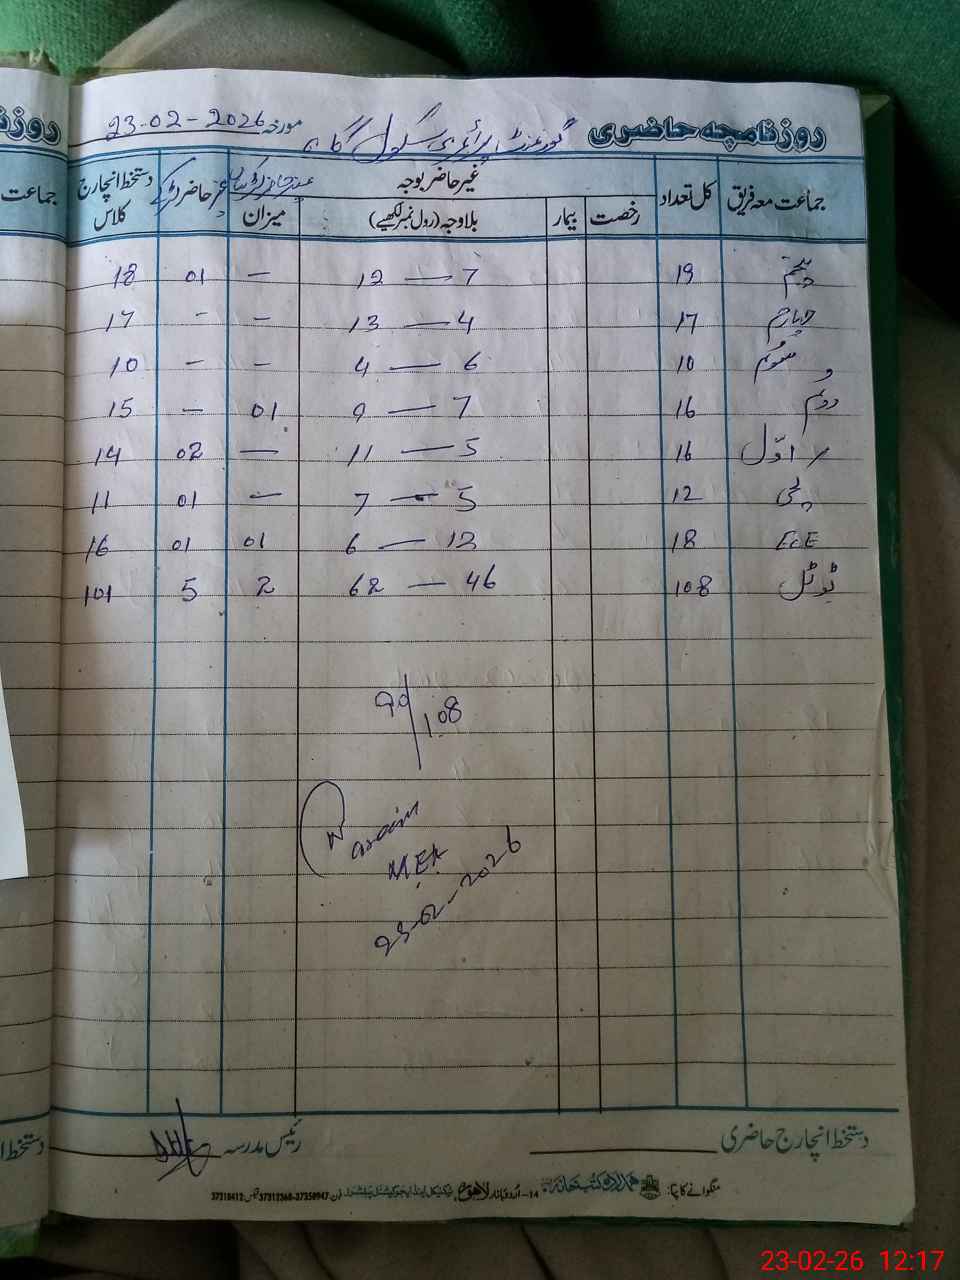 روزنامچہ حاضری گورنمنٹ پرائمری سکول مورخہ 23-02-2026
جماعت معہ فریق کل تعداد غیر حاضر بوجہ غیر حاضر دستخط انچارج کلاس
رخصت بیمار بلاوجہ (رول نمبر لکھیے) میزان
پنجم 19 7 — 12 — 01 18
چہارم 17 4 — 13 - - 17
سوئم 10 6 — 4 - - 10
دوئم 16 7 — 9 01 - 15
اوّل 16 5 — 11 — 02 14
کچی 12 5 — 7 — 01 11
ECE 18 12 — 6 01 01 16
ٹوٹل 108 46 — 62 2 5 101
90/108
23-02-2026
دستخط انچارج حاضری رئیس مدرسہ
منگوانے کا پتہ: ہمدرد کتب خانہ 14-اُردو بازار لاہور
37310412 37312360-37350947
روزنا
جماعت
دستخط ا
23-02-26 12:17